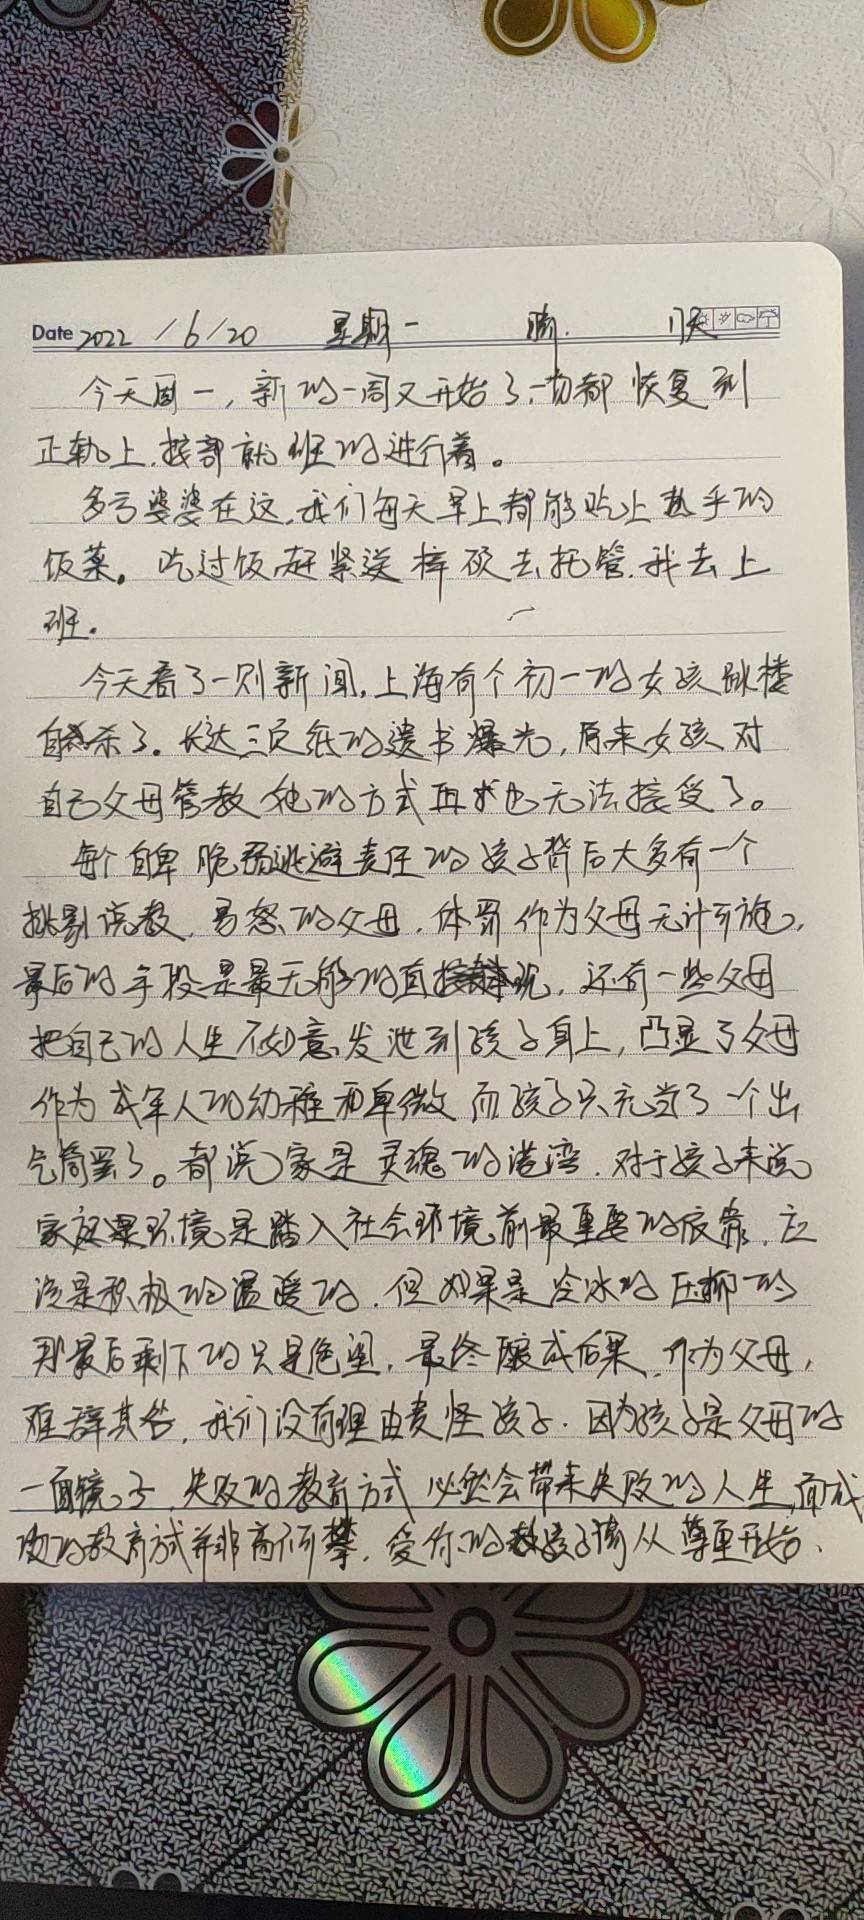 Date 2022 /6/20 星期一 晴.
今天周一，新的一周又开始了，一切都恢复到
正轨上，按部就班的进行着。
多亏婆婆在这，我们每天早上都能吃上热乎的
饭菜。吃过饭赶紧送梓硕去托管，我去上
班。
今天看了一则新闻，上海有个初一的女孩跳楼
自杀了。长达三页纸的遗书曝光，原来女孩对
自己父母管教她的方式再也无法接受了。
每个自卑脆弱逃避责任的孩子背后大多有一个
挑剔说教，易怒的父母，体罚作为父母无计可施，
最后的手段是最无能的直接体现，还有一些父母
把自己的人生不如意发泄到孩子身上，凸显了父母
作为成年人的幼稚和卑微而孩子只充当了一个出
气筒罢了。都说家是灵魂的港湾，对于孩子来说
家庭环境是踏入社会环境前最重要的依靠，应
该是积极的温暖的，但如果是冷冰的压抑的
那最后剩下的只是绝望，最终酿成后果，作为父母，
难辞其咎，我们没有理由责怪孩子，因为孩子是父母的
一面镜子，失败的教育方式必然会带来失败的人生，而成
功的教育方式并非高不可攀，爱你的孩子请从尊重开始、